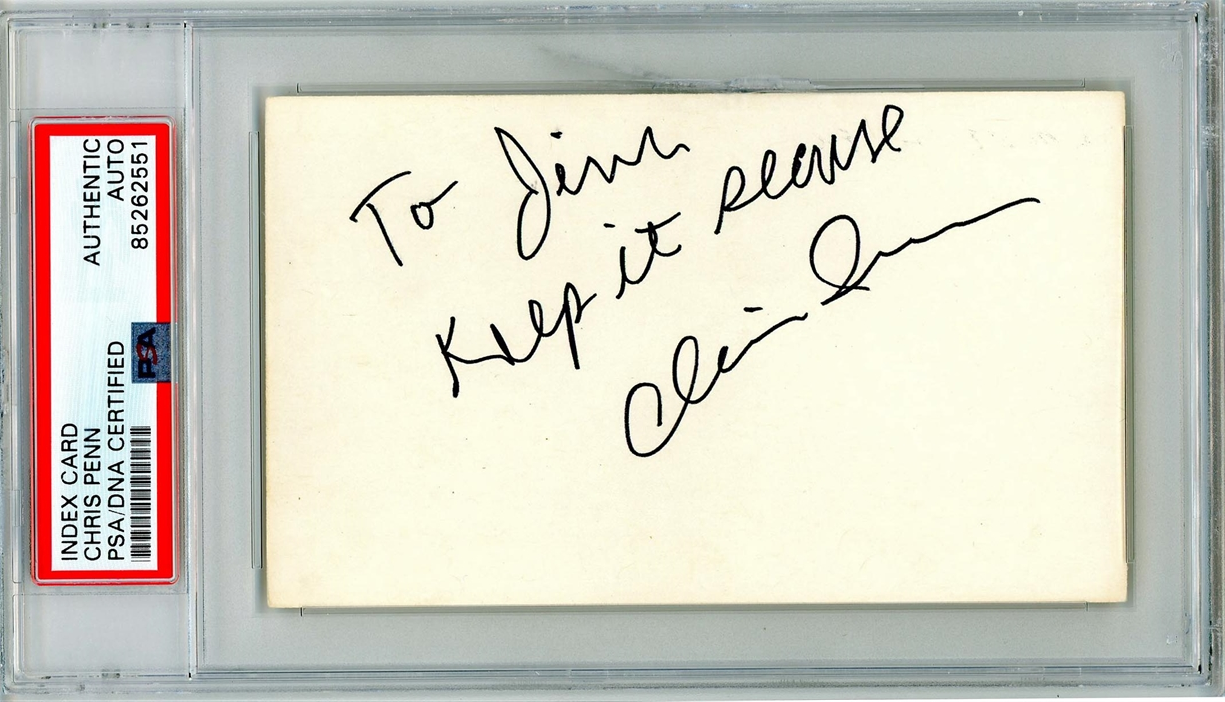 INDEX CARD
CHRIS PENN
PSA/DNA CERTIFIED
PSA
AUTHENTIC
AUTO
85262551
To Jim
Keep it
Chris Penn